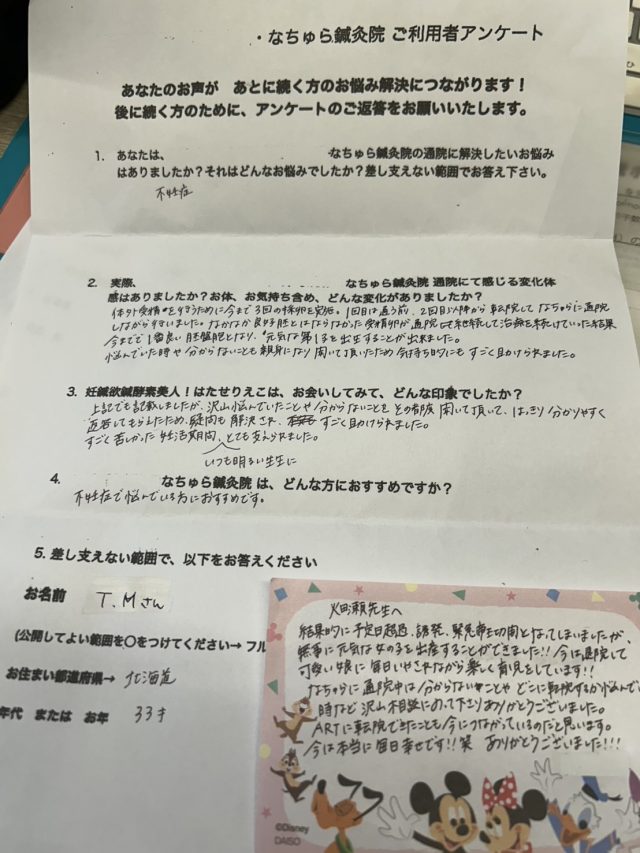 ・なちゅら鍼灸院 ご利用者アンケート
あなたのお声が あとに続く方のお悩み解決につながります！
後に続く方のために、アンケートのご返答をお願いいたします。
1. あなたは、 なちゅら鍼灸院の通院に解決したいお悩み
はありましたか？それはどんなお悩みでしたか？差し支えない範囲でお答え下さい。
不妊症
2. 実際、 なちゅら鍼灸院 通院にて感じる変化体
感はありましたか？お体、お気持ち含め、どんな変化がありましたか？
体外受精をするために今まで3回の採卵を実施。1回目は違う前、2回目以降から転院してなちゅらに通院
しながら行いました。なかなか良好胚とはならなかった受精卵が通院して継続して治療を続けていった結果
今までで1番良い胚盤胞となり、元気な第1子を出産することが出来ました。
悩んでいた時や分からないことも親身になり聞いて頂いたため気持ち的にもすごく助けられました。
3. 妊鍼欲鍼酵素美人！はたせりえこは、お会いしてみて、どんな印象でしたか？
上記でも記載しましたが、沢山悩んでいたことや分からないことをその都度聞いて頂いて、はっきり分かりやすく
返答してもらえたため、疑問も解決され、すごく助けられました。
すごく苦しかった妊活期間、とても支えられました。
いつも明るい先生に
4. なちゅら鍼灸院 は、どんな方におすすめですか？
不妊症で悩んでいる方におすすめです。
5. 差し支えない範囲で、以下をお答えください
お名前 T.Mさん
(公開してよい範囲を〇をつけてください→ フル
お住まい都道府県→ 北海道
年代 または お年 33才
畑瀬先生へ
結果的に予定日超過、誘発、緊急帝王切開となってしまいましたが、
無事に元気な女の子を出産することができました!! 今は退院して
可愛い娘に毎日いやされながら楽しく育児をしています!!
なちゅらに通院中は分からないことやどこに転院するか悩んでいた
時など沢山相談にのって下さりありがとうございました。
ARTに転院できたことも今につながっているのだと思います。
今は本当に毎日幸せです!!笑 ありがとうございました!!!
©Disney
DAISO